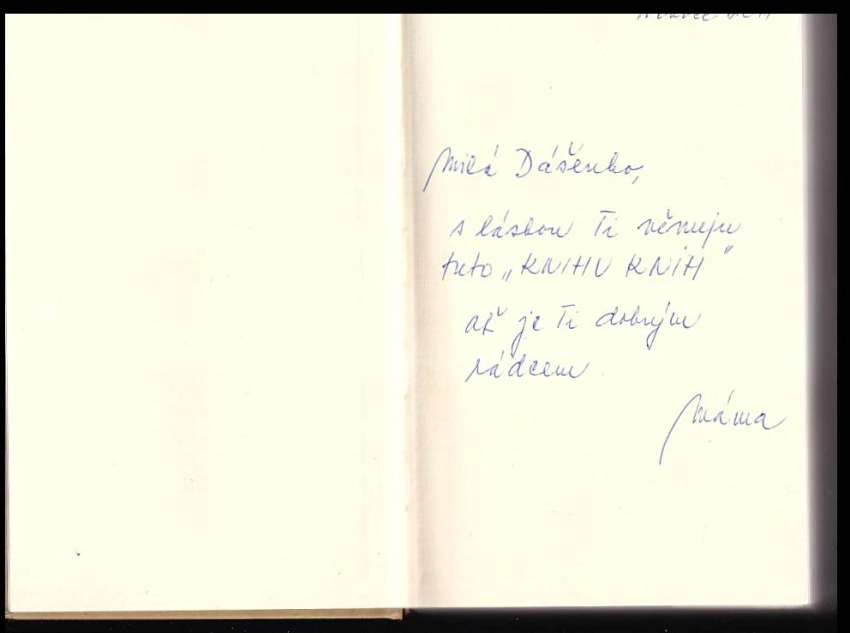 Milá Dášenko,
s láskou Ti věnuju
tuto „KNIHU KNIH"
ať je Ti dobrým
rádcem
Máma